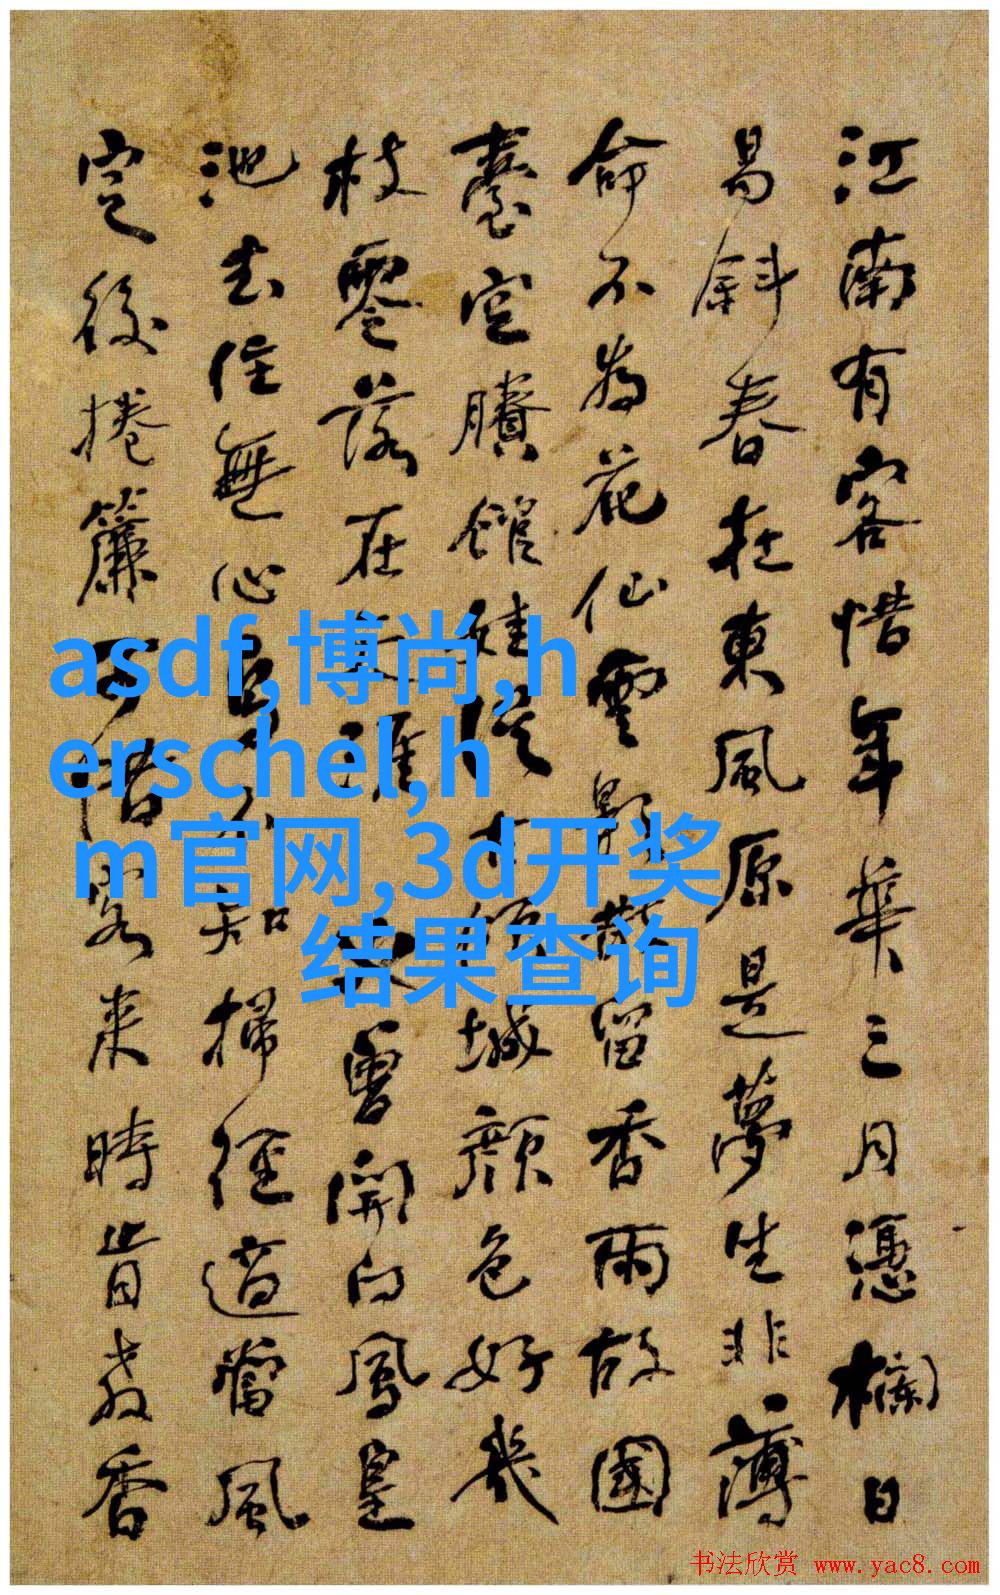 江南有客惜年華三月憑欄日
易斜春在東風原是夢生非薄
命不為花仙雲影散留香雨故國
臺空賸館娃從古傾城顏色好幾
枝零落在涯曾開向鳳皇
池去住無心知掃徑適當風
定後捲簾可惜客來時肯教香
asdf,博尚,h
erschel,h
m官网,3d开奖
结果查询
书法欣赏 www.yac8.com